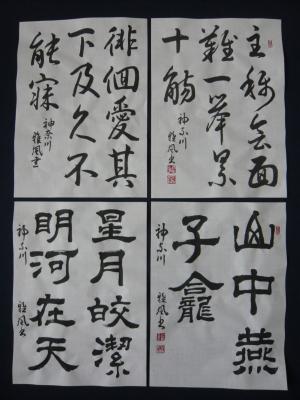 主称會面
難一舉累
十觴
神奈川
雅風書
徘徊愛其
下及久不
能寐
神奈川
雅風書
山中燕
子龕
神奈川
雅風書
星月皎潔
明河在天
神奈川
雅風書